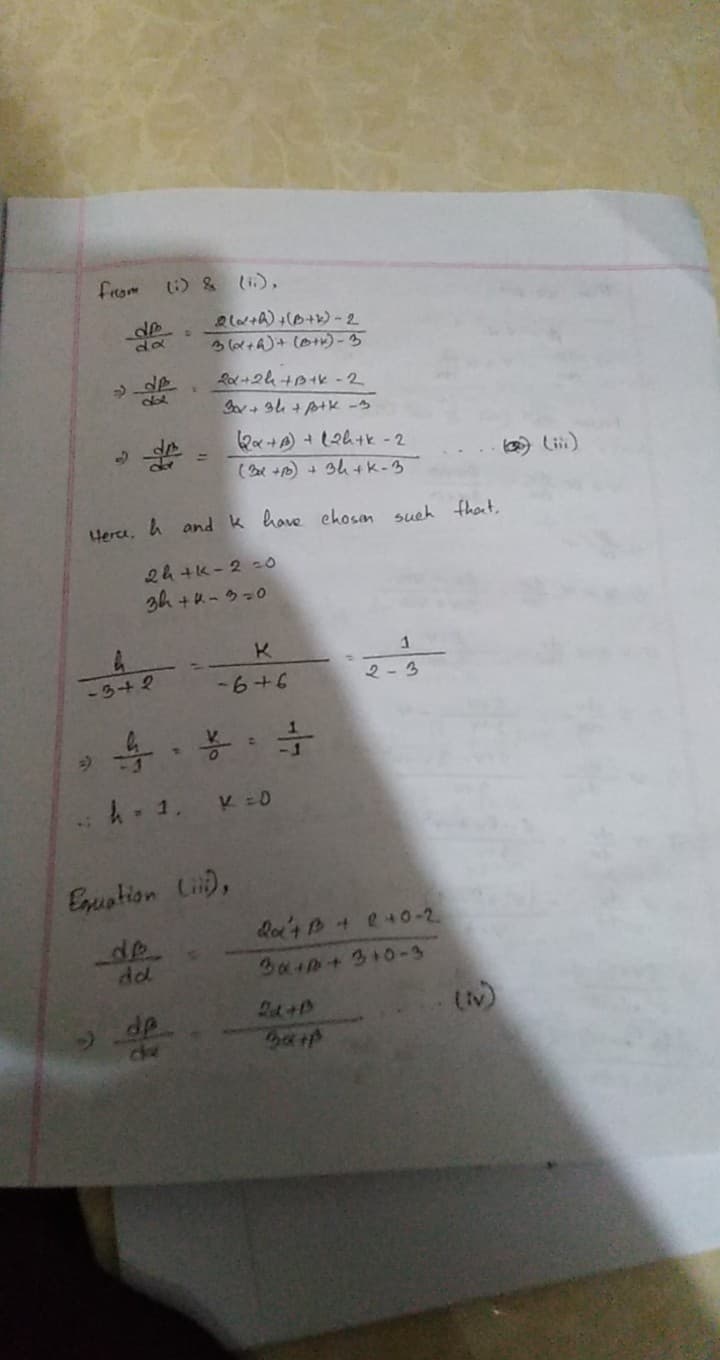 From (i) & (ii),
dβ/dα = 2(α+h)+(β+k)-2 / 3(α+h)+(β+k)-3
⇒ dβ/dα = 2α+2h+β+k-2 / 3α+3h+β+k-3
⇒ dβ/dα = (2α+β)+(2h+k-2 / (3α+β)+3h+k-3 .... (iii)
Here, h and k have chosen such that.
2h+k-2=0
3h+k-3=0
h/-3+2 = k/-6+6 = 1/2-3
⇒ h/-1 = k/0 = 1/-1
∴ h = 1. k = 0
Equation (iii),
dβ/dα = 2α+β+2+0-2 / 3α+β+3+0-3
⇒ dβ/dα = 2α+β / 3α+β .... (iv)